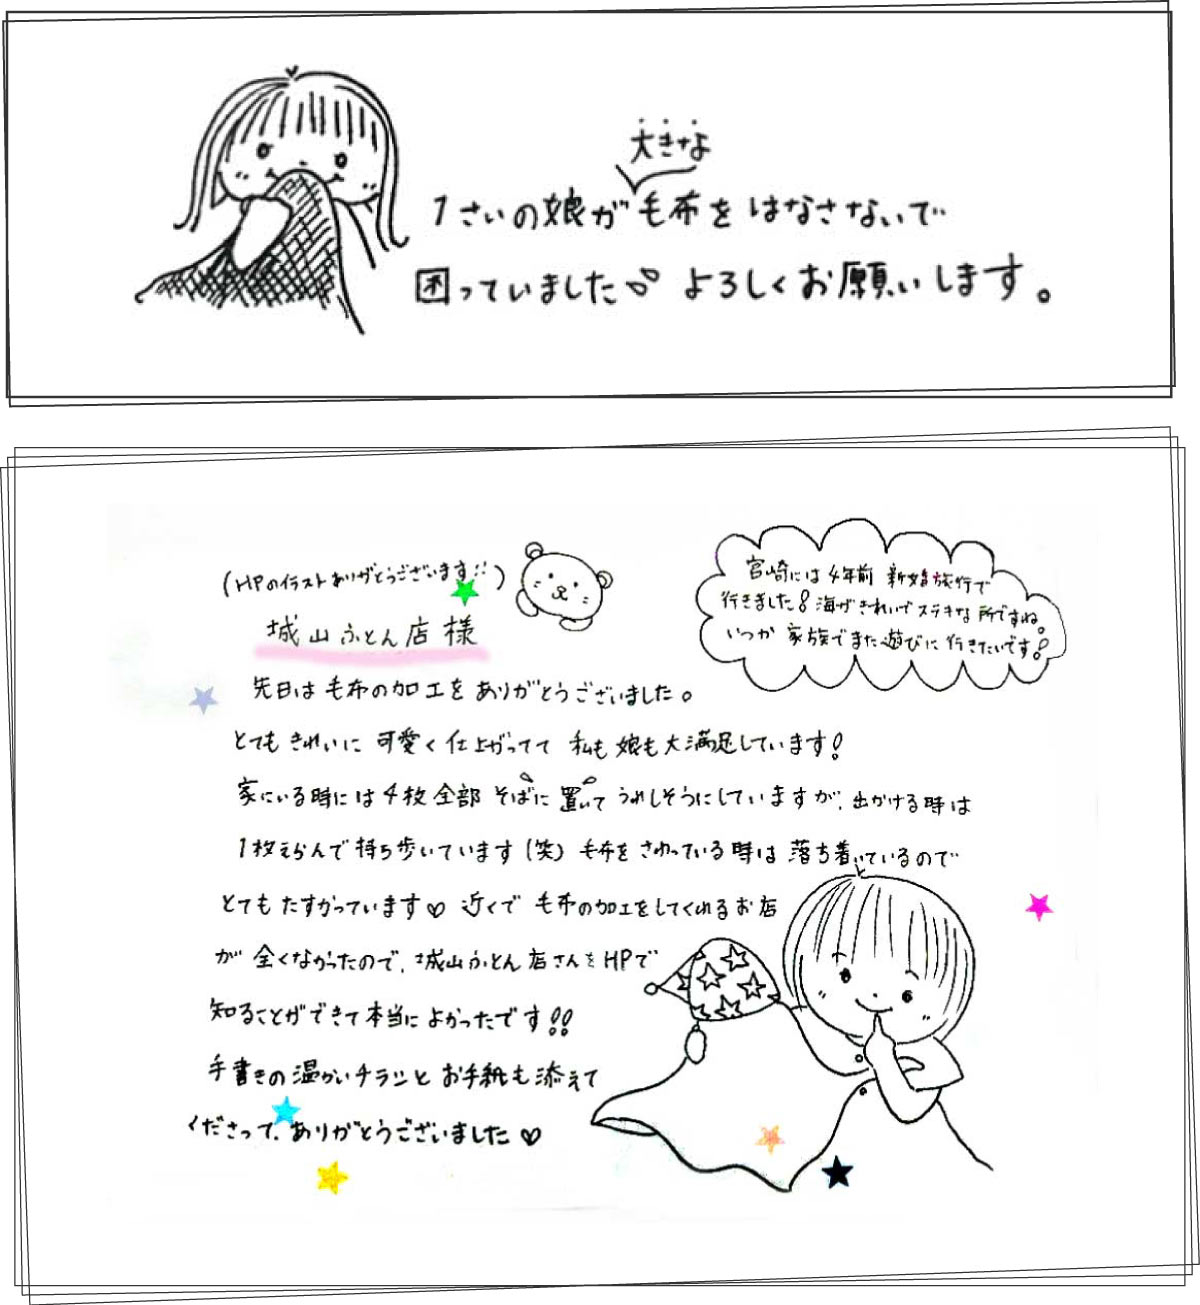 大きな
1さいの娘が毛布をはなさないで
困っていました よろしくお願いします。
(HPのイラストありがとうございます!!)
城山ふとん店様
宮崎には4年前 新婚旅行で
行きました!海がきれいでステキな所ですね。
いつか 家族でまた遊びに行きたいです!
先日は毛布の加工をありがとうございました。
とてもきれいに可愛く仕上がってて 私も娘も大満足しています!
家にいる時には4枚全部 そばに置いて うれしそうにしていますが、出かける時は
1枚えらんで持ち歩いています(笑) 毛布をさわっている時は 落ち着いているので
とてもたすかっています♡ 近くで 毛布の加工をしてくれるお店
が 全くなかったので、城山ふとん店さんをHPで
知ることができて本当によかったです!!
手書きの温かいチラシと お手紙も添えて
くださって、ありがとうございました♡